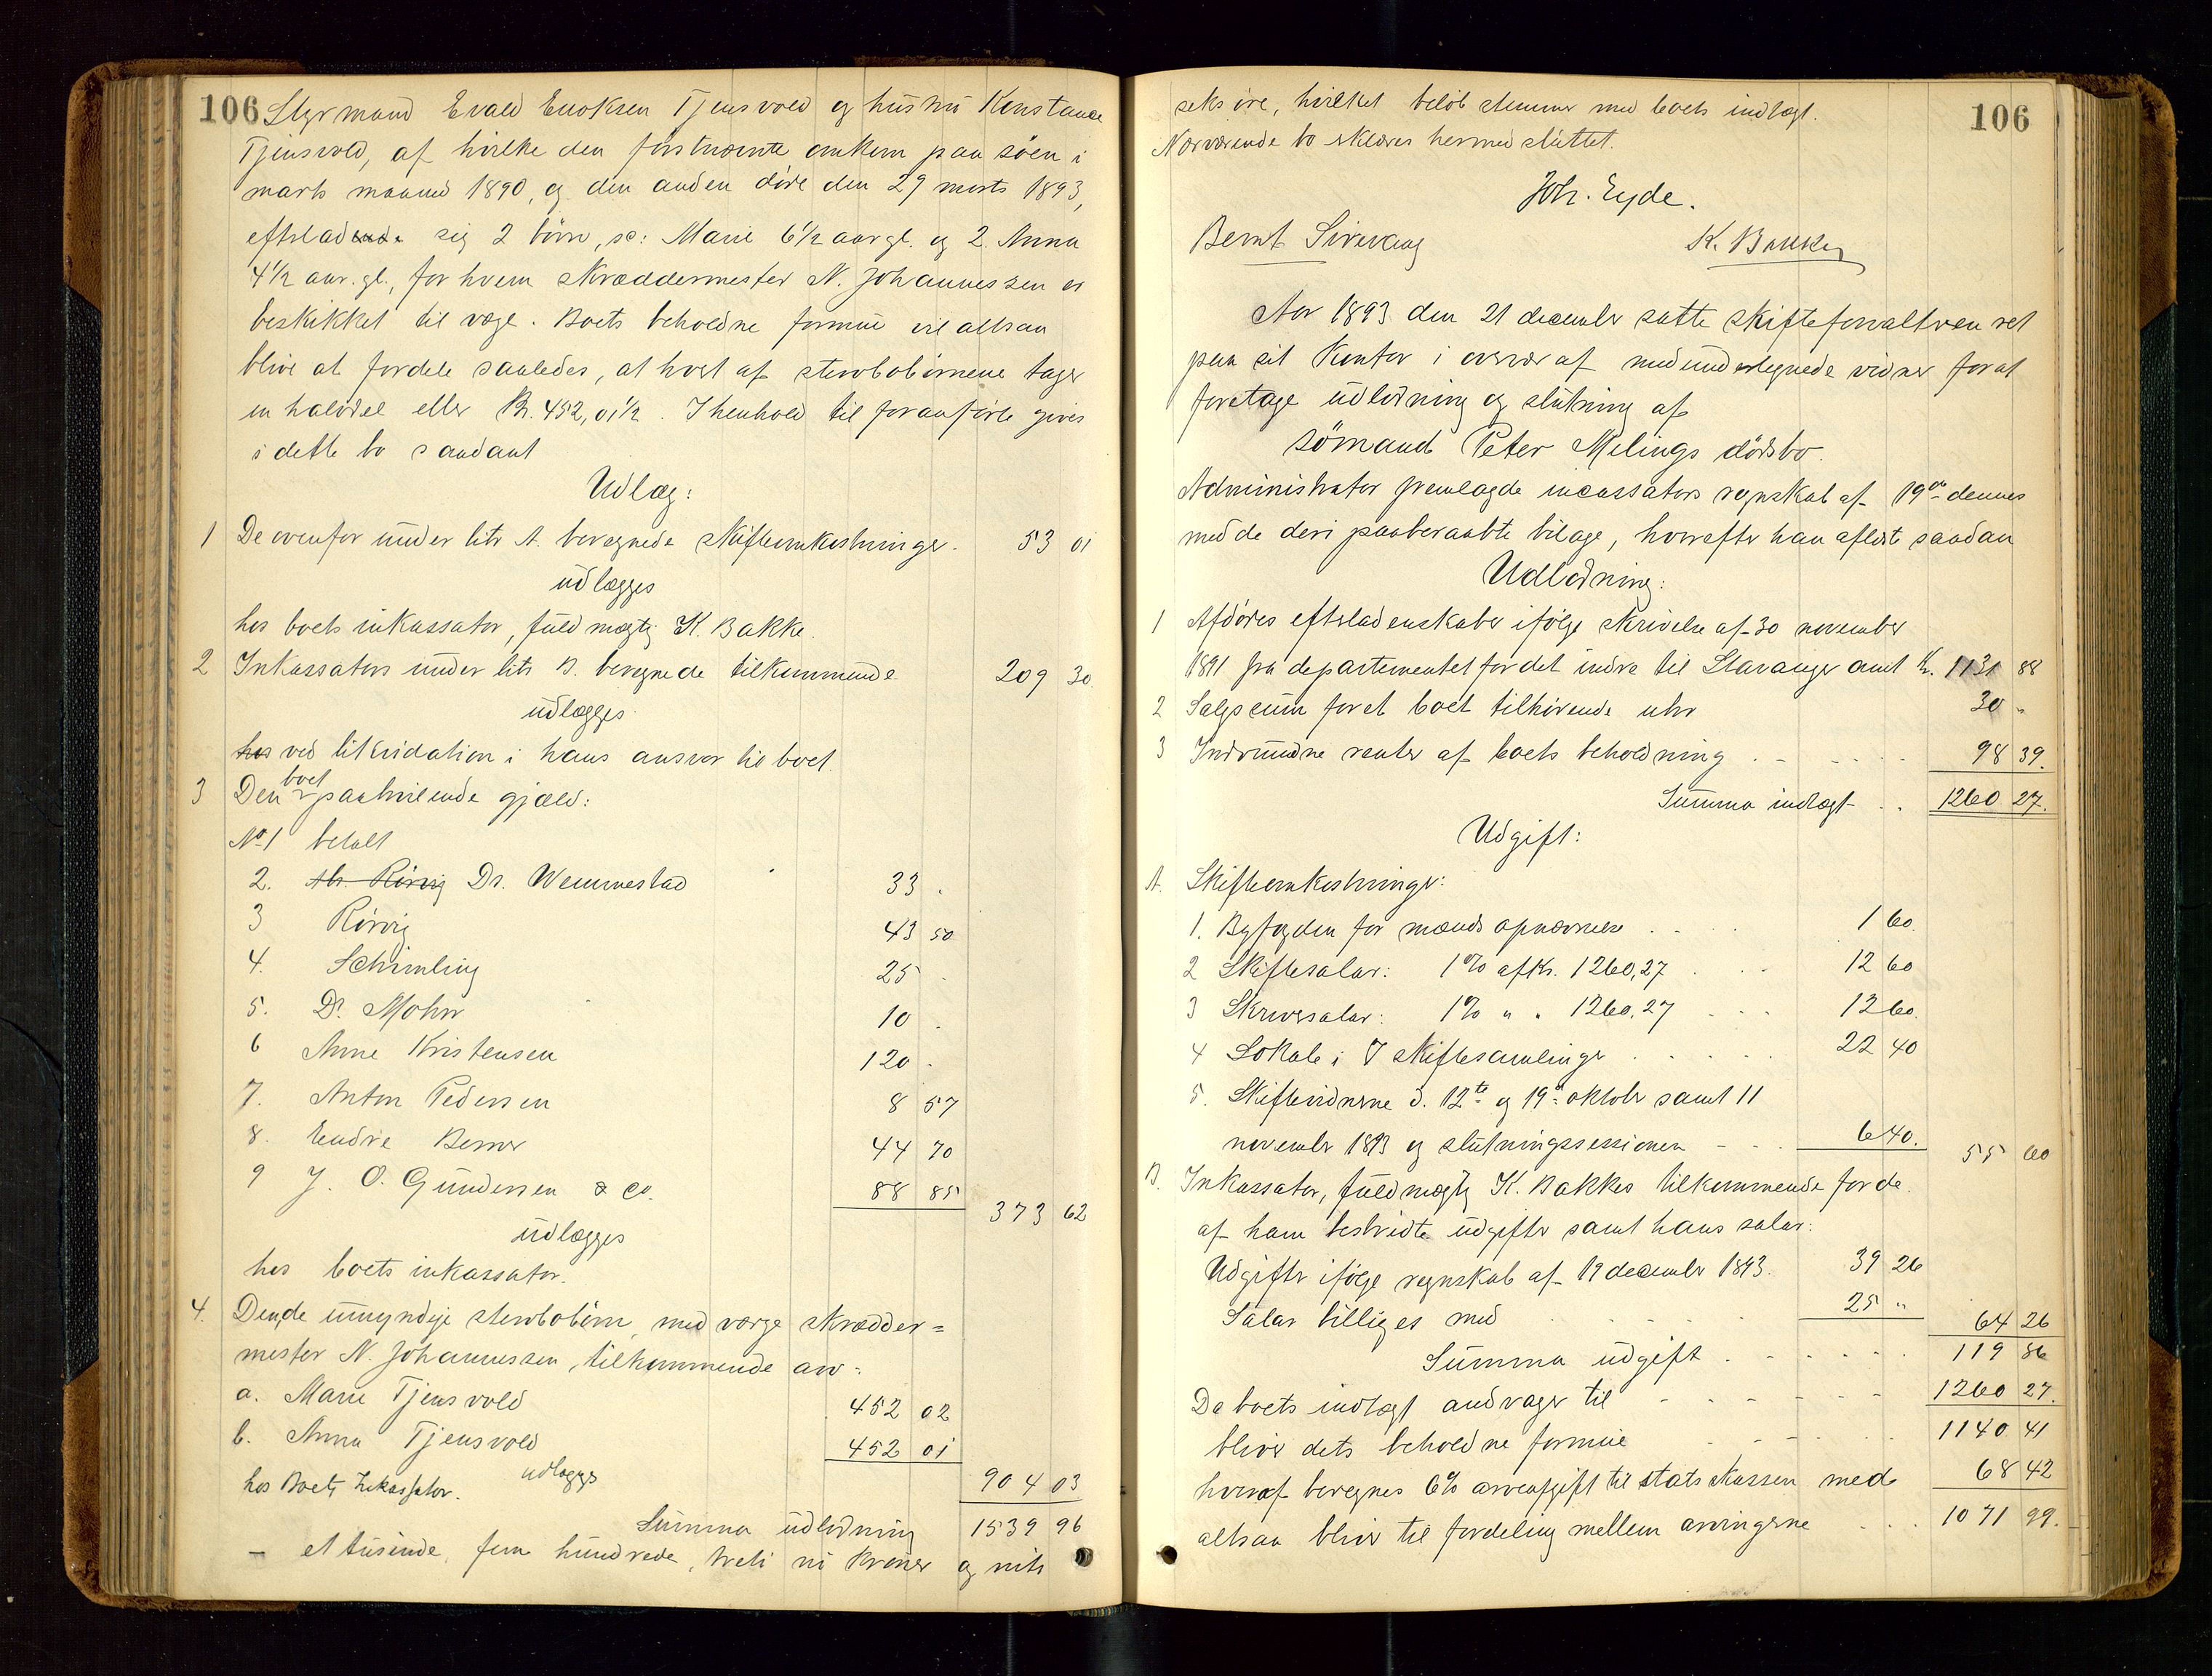 106 Styrmand Evald Enoksen Tjensvold og hustru Konstance
Tjensvold, af hvilke den förstnævnte omkom paa söen i
marts maaned 1890, og den anden döde den 29 marts 1893,
efterladende sig 2 börn, sc: Marie 6½ aar gl. og 2. Anna
4½ aar. gl., for hvem skræddermester N. Johannessen er
beskikket til værge. Boets beholdne formue vil altsaa
blive at fordele saaledes, at hvert af sterbobörnene tager
en halvdel eller Kr. 452,01½. I henhold til foranförte gives
i dette bo saadant
Udlæg:
1 De ovenfor under litr A. beregnede skifteomkostninger. 53 01
udlægges
hos boets inkassator, fuldmægtig K. Bakke.
2 Inkassators under litr B. beregnede tilkommende 209 30
udlægges
hos ved likvidation i hans ansvar til boet.
3 Den boet paahvilende gjæld:
No 1 betalt
2. Rörvig Dr. Wennestad 33 .
3 Rörvig 43 50
4. Schimling 25 .
5. Dr. Mohn 10 .
6 Anne Kristensen 120 .
7. Anton Pedersen 8 57
8. Endre Berner 44 70
9 J. O. Gundersen & Co. 88 85
373 62
udlægges
hos boets inkassator.
4. Den de umyndige sterbobörn, med værge skrædder=
mester N. Johannessen, tilkommende arv:
a. Marie Tjensvold 452 02
b. Anna Tjensvold 452 01
udlægges
hos Boets Inkassator. 904 03
Summa udlodning 1539 96
— et tusinde, fem hundrede, treti ni kroner og niti
seks öre, hvilket belöb stemmer med boets indtægt. 106
Nærværende bo erklæres hermed sluttet.
Joh. Eyde.
Bernt K. Bakke
Aar 1893 den 21 december satte skifteforvalteren ret
paa sit kontor i overvær af medundertegnede vidner for at
foretage udlodning og slutning af
sömand Peter Melings dödsbo.
Administrator fremlagde incassators regnskab af 19de dennes
med de deri paaberaabte bilage, hvorefter han aflæste saadan
Udlodning:
1 Afdödes efterladenskaber ifölge skrivelse af 30 november
1891 fra departementet for det indre til Stavanger amt Kr. 1131 88
2 Salgssum for et boet tilhörende uhr 30 "
3 Indvundne renter af boets beholdning . - - . . . 98 39.
Summa indtægt . . 1260 27.
Udgift:
A. Skifteomkostninger:
1. Byfogden for mænds opnævnelse . . . . 1 60.
2 Skiftesalær: 1% af Kr. 1260,27 . . . 12 60
3 Skriversalær: 1% " " 1260,27 . . . 12 60.
4 Lokale i 7 skiftesamlinger . . . . . 22 40
5. Skiftevidnerne d. 12te og 19de oktober samt 11
november 1893 og slutningssessionen - - . 6 40. 55 60
B. Inkassator, fuldmægtig K. Bakkes tilkommende for de
af ham bestridte udgifter samt hans salær:
Udgifter ifölge regnskab af 19 december 1893. 39 26
Salær billiges med . . . . 25 " 64 26
Summa udgift . . . . . 119 86
Da boets indtægt andrager til - - - - - - 1260 27.
bliver dets beholdne formue . - - - . . 1140 41
hvoraf beregnes 6% arveafgift til statskassen med 68 42
altsaa bliver til fordeling mellem arvingerne . . . 1071 99.